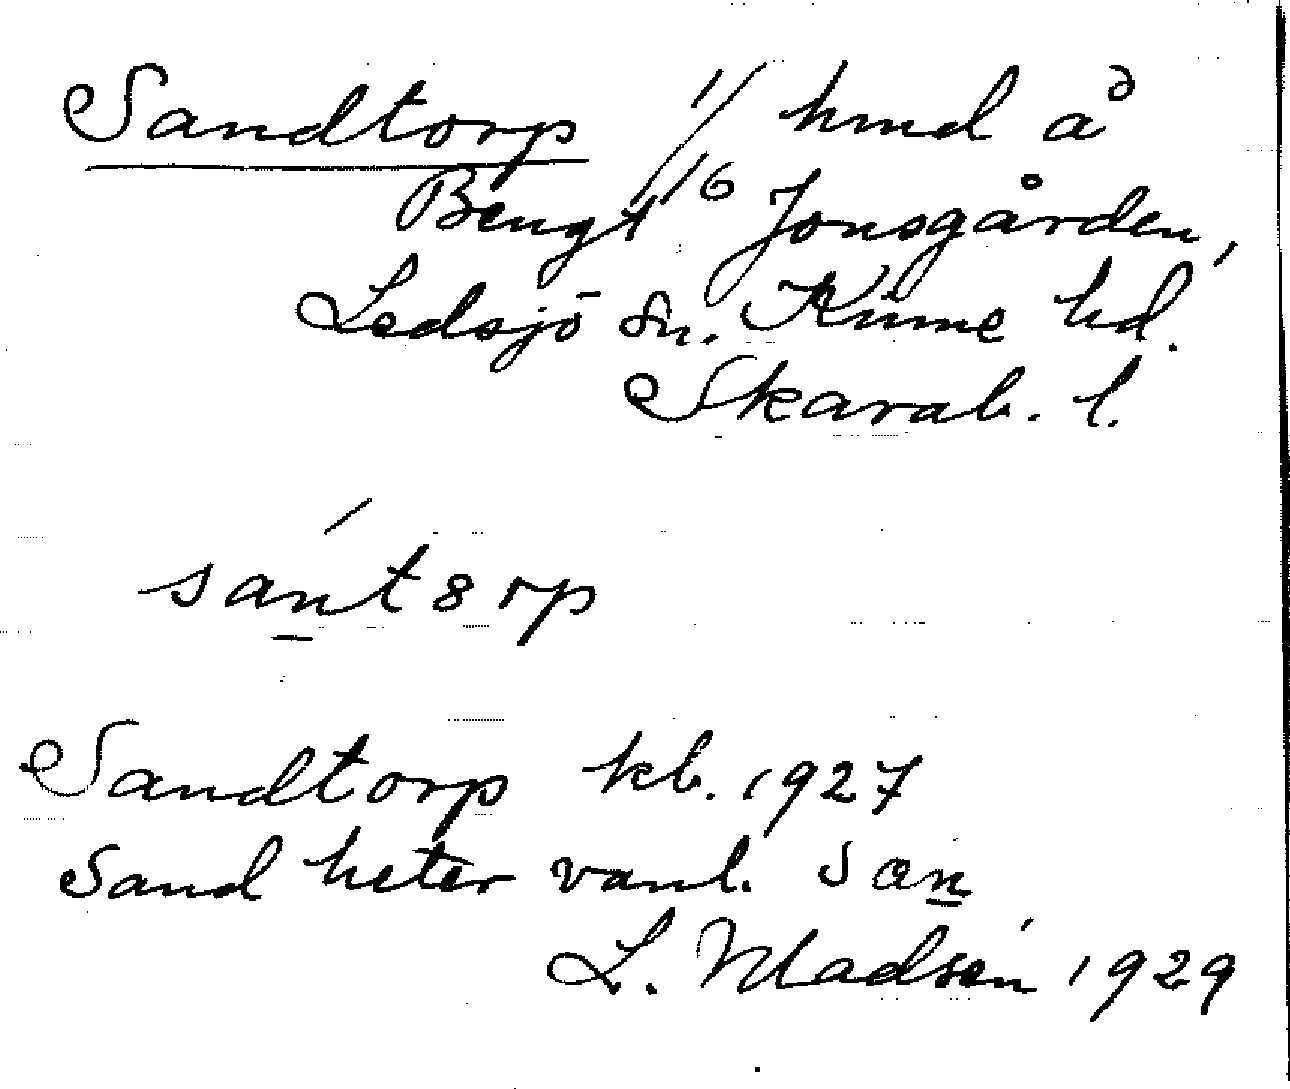 Sandtorp 1/16 hmd å
Bengt Jonsgården,
Ledsjö sn. Kinne hd.
Skarab. l.
sant8rp
Sandtorp kb. 1927
Sand heter vanl. san
L. Madsén 1929